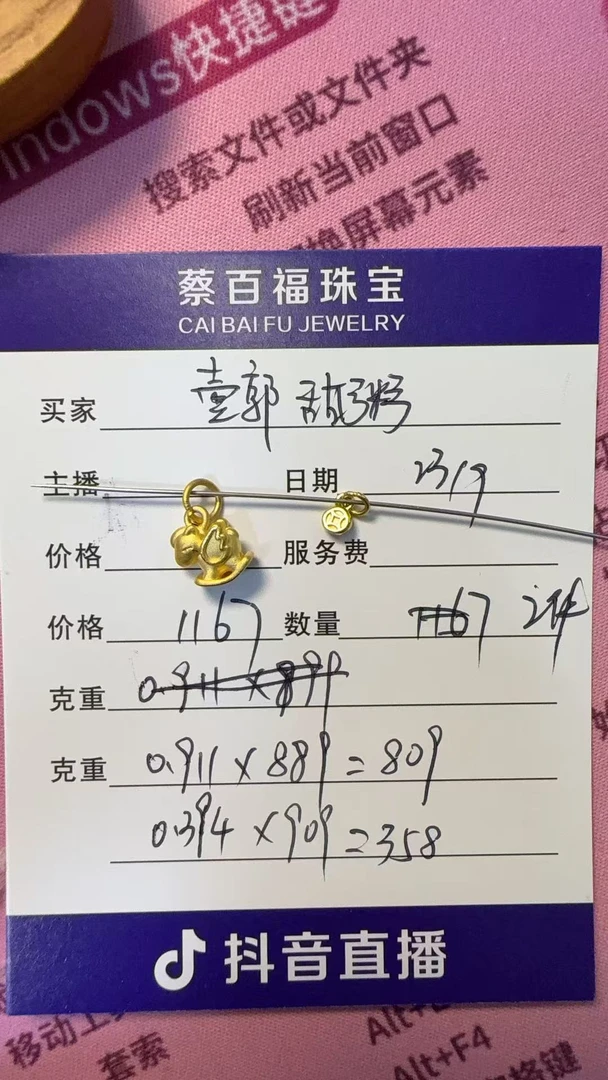 indows快捷键
搜索文件或文件夹
刷新当前窗口
换屏幕元素
蔡百福珠宝
CAI BAI FU JEWELRY
买家 壹郭 甜粥
主播 日期
价格 服务费
价格 1167 数量 1167 2件
克重 0.911 x 899
克重 0.911 x 889 = 809
0.394 x 909 = 358
抖音直播
移动工
套索
Alt+F4
换键